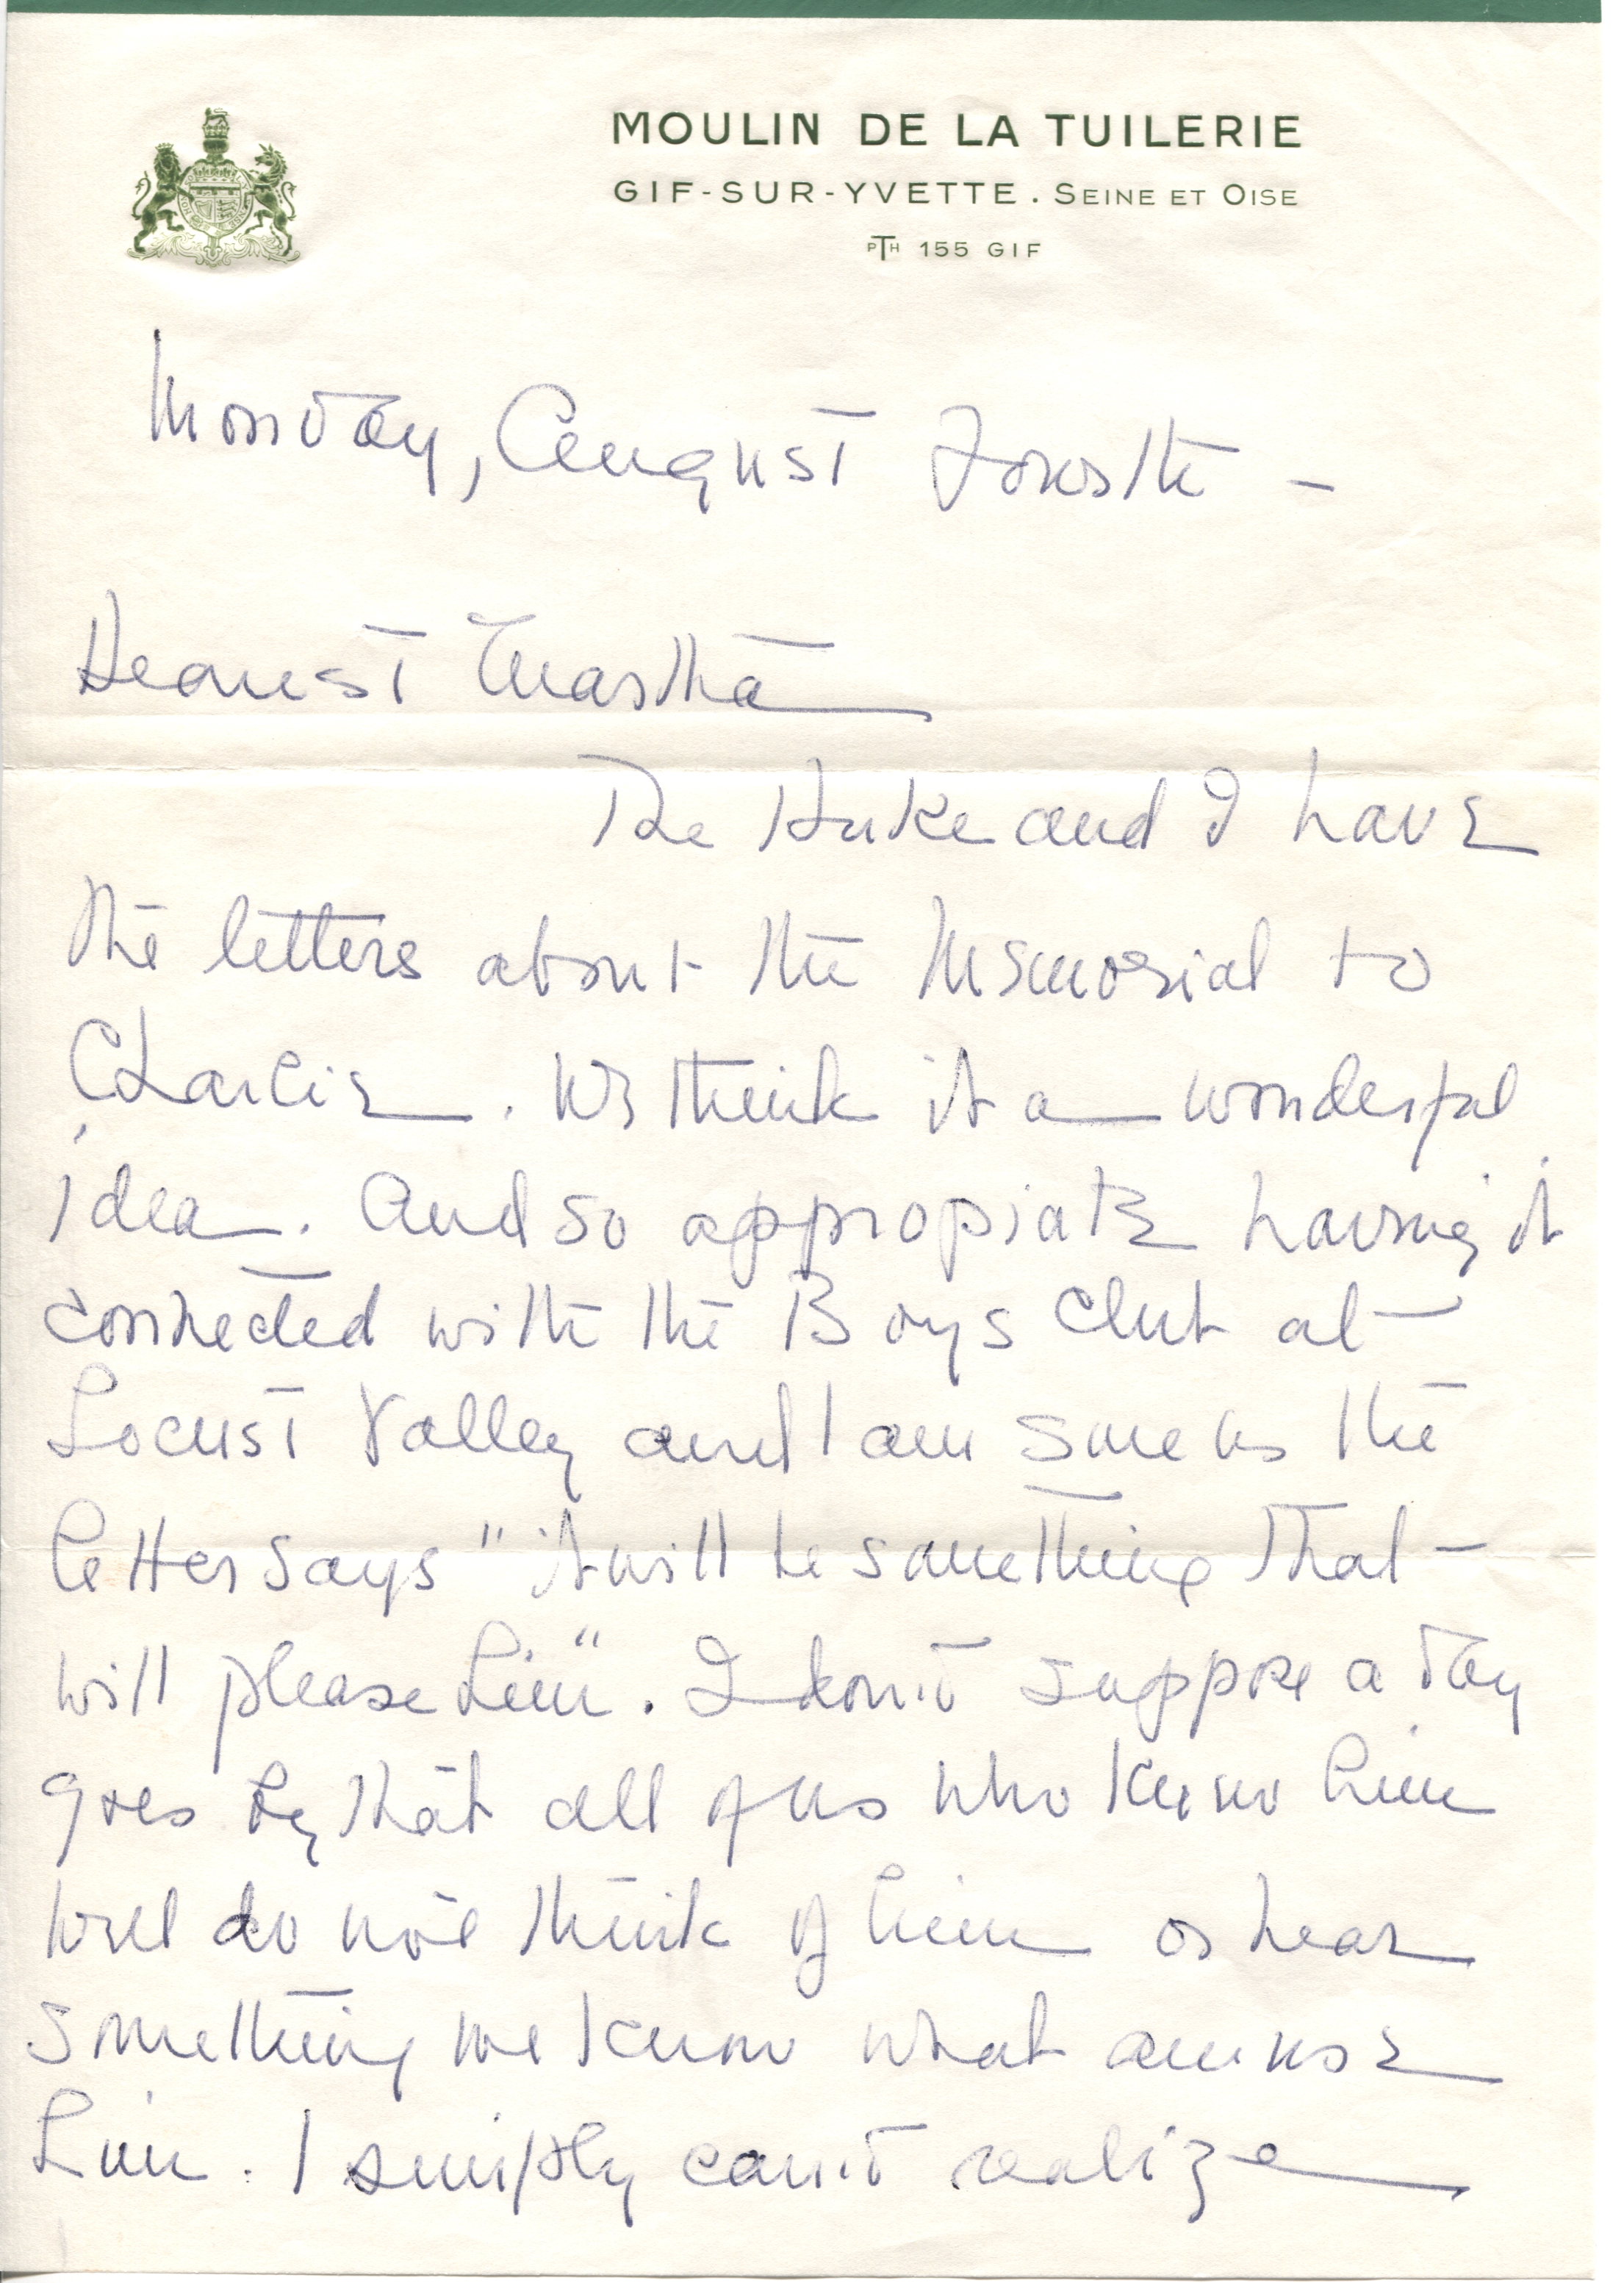 MOULIN DE LA TUILERIE
GIF-SUR-YVETTE. SEINE ET OISE
PTH 155 GIF
Monday, August Fourth -
Dearest Martha
The Duke and I have
the letters about the Memorial to
Charlie. We think it a wonderful
idea. And so appropiate having it
connected with the Boys Club at
Locust Valley and I am sure as the
letter says "it will be something that
will please him". I don't suppose a day
goes by that all of us who knew him
well do not think of him or hear
something we know what amuse
him. I simply can't realize